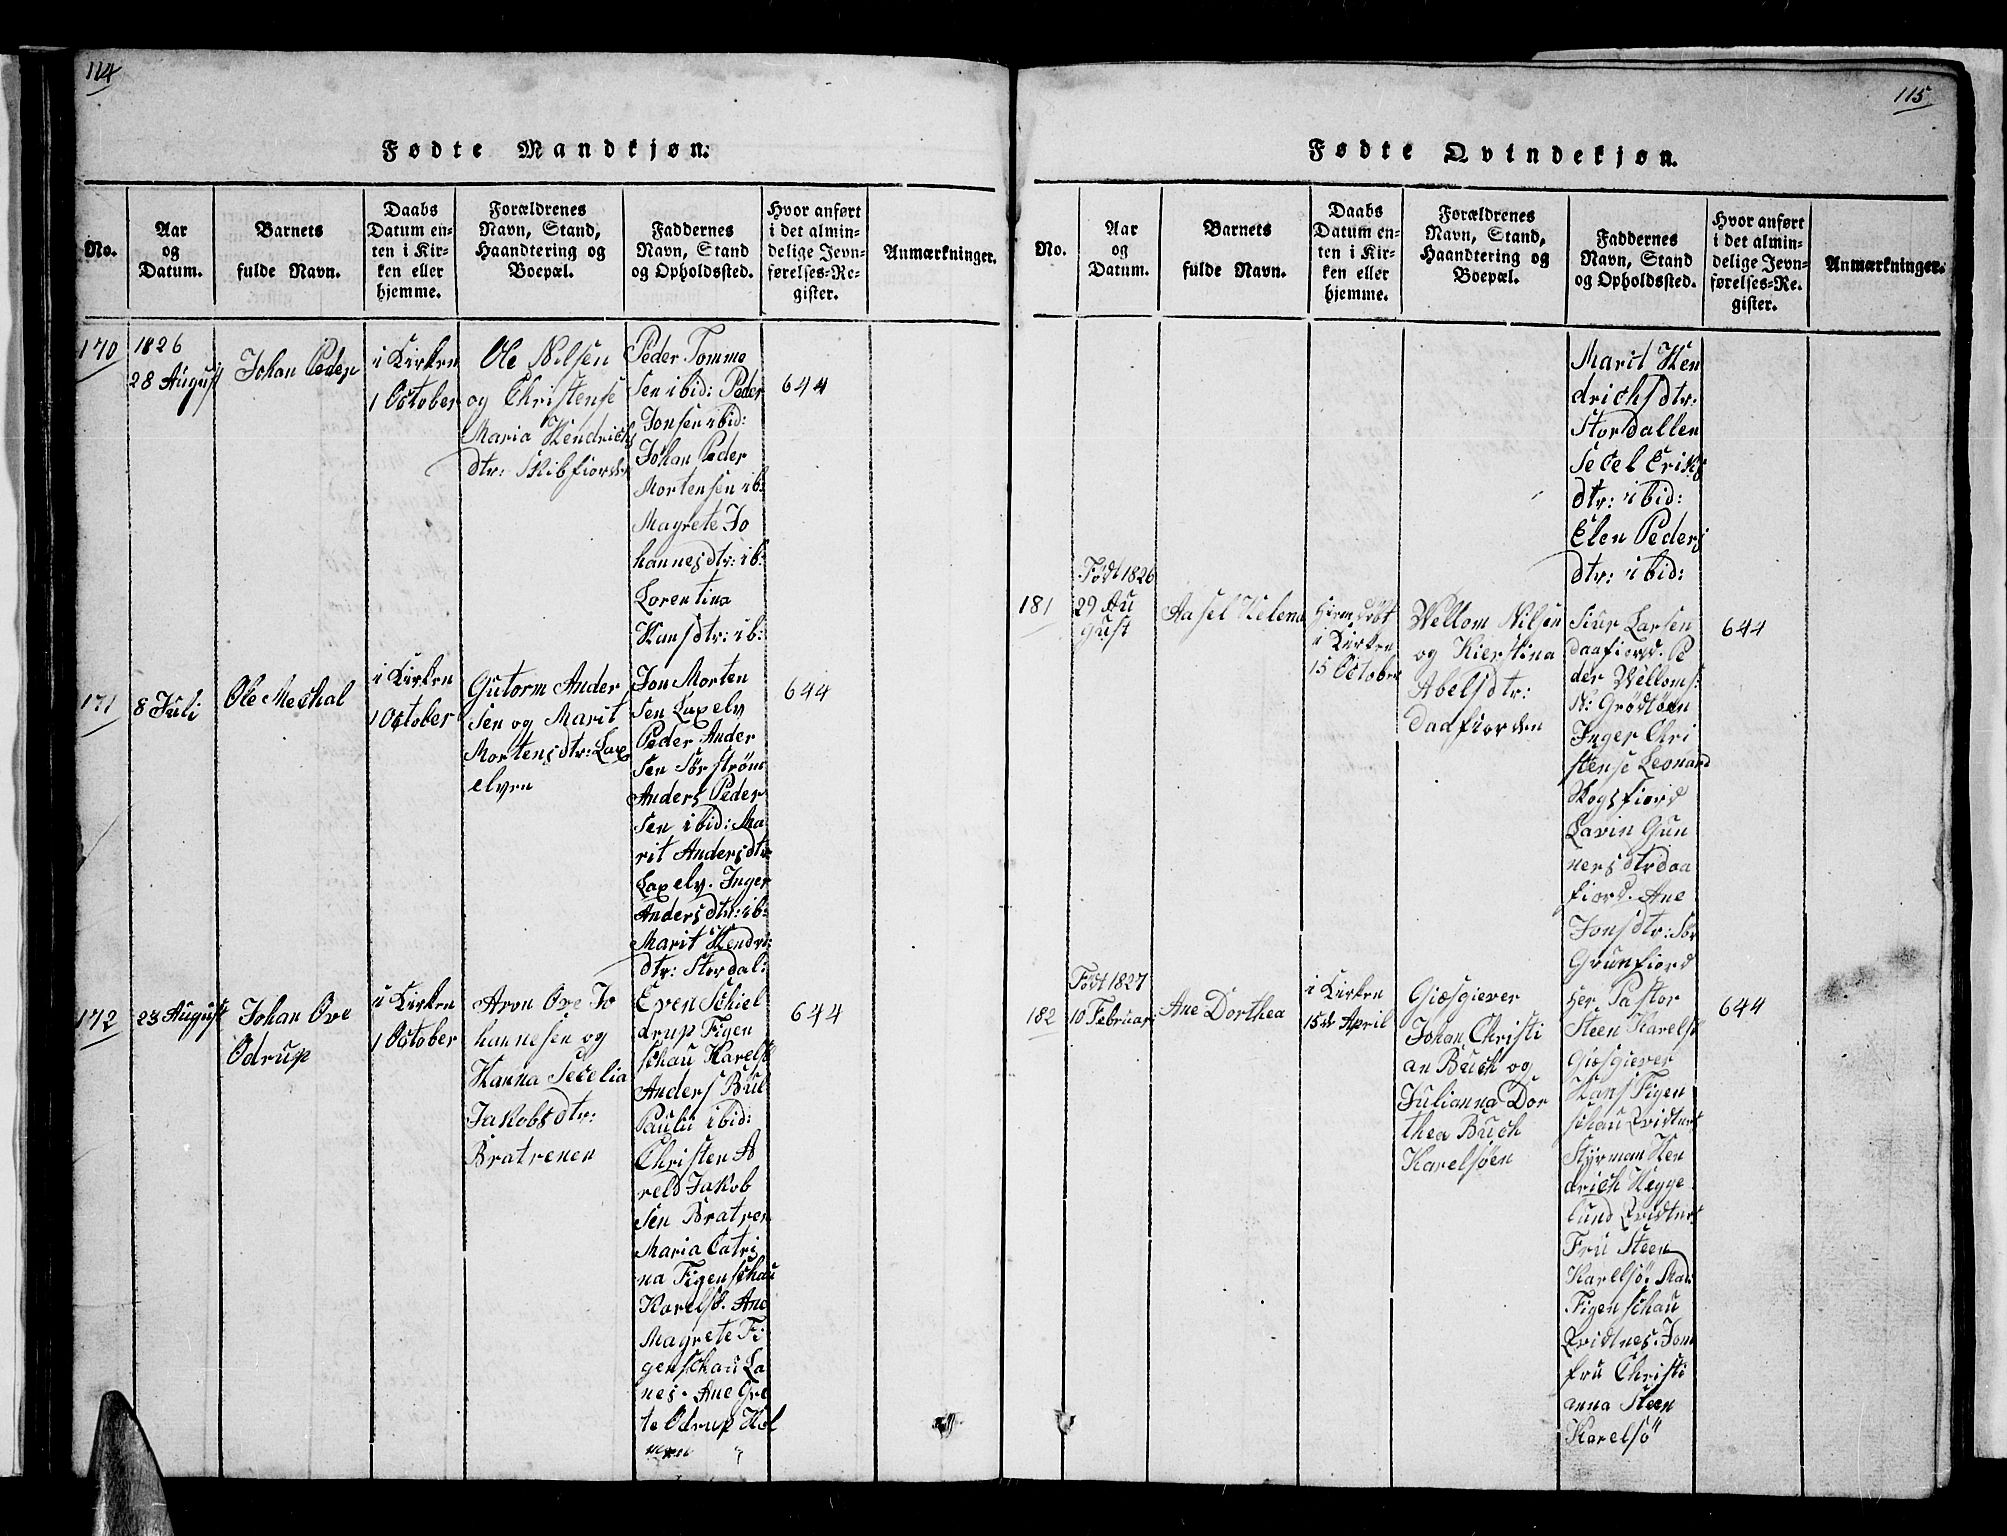 114
Fødte Mandkjøn.
No.
Aar
og
Datum.
Barnets
fulde Navn.
Daabs
Datum en-
ten i Kir-
ken eller
hjemme.
Forældrenes
Navn, Stand,
Haandtering og
Boepæl.
Faddernes
Navn, Stand
og Opholdssted.
Hvor anført
i det almin-
delige Jevn-
førelses-Re-
gister.
Anmærkninger.
170
1826
28 August
Johan Peder
i Kirken
1 October
Ole Nilsen
og Christense
Maria Hendrichs
dtr: Skibfiorden
Peder Tomme
sen ibid: Peder
Jonsen ibid:
Johan Peder
Mortensen ib:
Magrete Jo
hannesdtr: ib:
Lorentina
Hansdtr: ib:
644
171
8 Juli
Ole Mechal
i Kirken
1 October
Gutorm Ander
sen og Marit
Mortensdtr: Lax
elven
Jon Morten
sen Laxelv
Peder Ander
sen Sørstrøm
Anders Peder
sen ibid: Ma
rit Andersdtr
Laxelv. Inger
Andersdtr: ib:
Marit Hendr:
dtr: Stordal:
644
172
23 August
Johan Ove
Odrup
i Kirken
1 October
Aron Ove Jo
hannesen og
Hanna Secelia
Jakobsdtr:
Bratrenen
Even Schiel
drup Figen
schau Karelsö
Anders Bul
Paulii ibid:
Christen A
reld Jakob
sen Bratren
Maria Catri
na Figenschau
Karelsö. Ane
Magrete Fi
genschau La
nes. Ane Gre
te Odrup Hel
644
115
Fødte Qvindekjøn.
No.
Aar
og
Datum.
Barnets
fulde Navn.
Daabs
Datum en-
ten i Kir-
ken eller
hjemme.
Forældrenes
Navn, Stand,
Haandtering og
Boepæl.
Faddernes
Navn, Stand
og Opholdssted.
Hvor anført
i det almin-
delige Jevn-
førelses-Re-
gister.
Anmærkninger.
Marit Hen
drichsdtr:
Stordallen
Secel Eriks
dtr: ibid:
Elen Peders
dtr: ibid:
181
Født 1826
29 Au
gust
Aasel Helena
Hiemdøbt
i Kirken
15 October
Wellom Nilsen
og Kierstina
Abelsdtr:
Daafiorden
Siur Larsen
Daafiord. Pe
der Velloms:
N: Grødtøen
Inger Chri
stense Leonard
Skogsfiord
Lavin Gun
nersdtr Daa
fiord. Ane
Jonsdtr: Sør
Grunfiord
644
182
Født 1827
10 Februar
Ane Dorthea
i Kirken
15de April
Giæsgiever
Johan Christi
an Buch og
Julianna Dor
thea Buch
Karelsöen
Her Pastor
Steen Karelsö
Giæsgiever
Hans Figen
schau Qvidtnes
Styrman Hen
drich Hegge
lund Qvidtnes
Fru Steen
Karelsö. Mad:
Figenschau
Qvidtnes. Jom
fru Christi
anna Steen
Karelsö
644